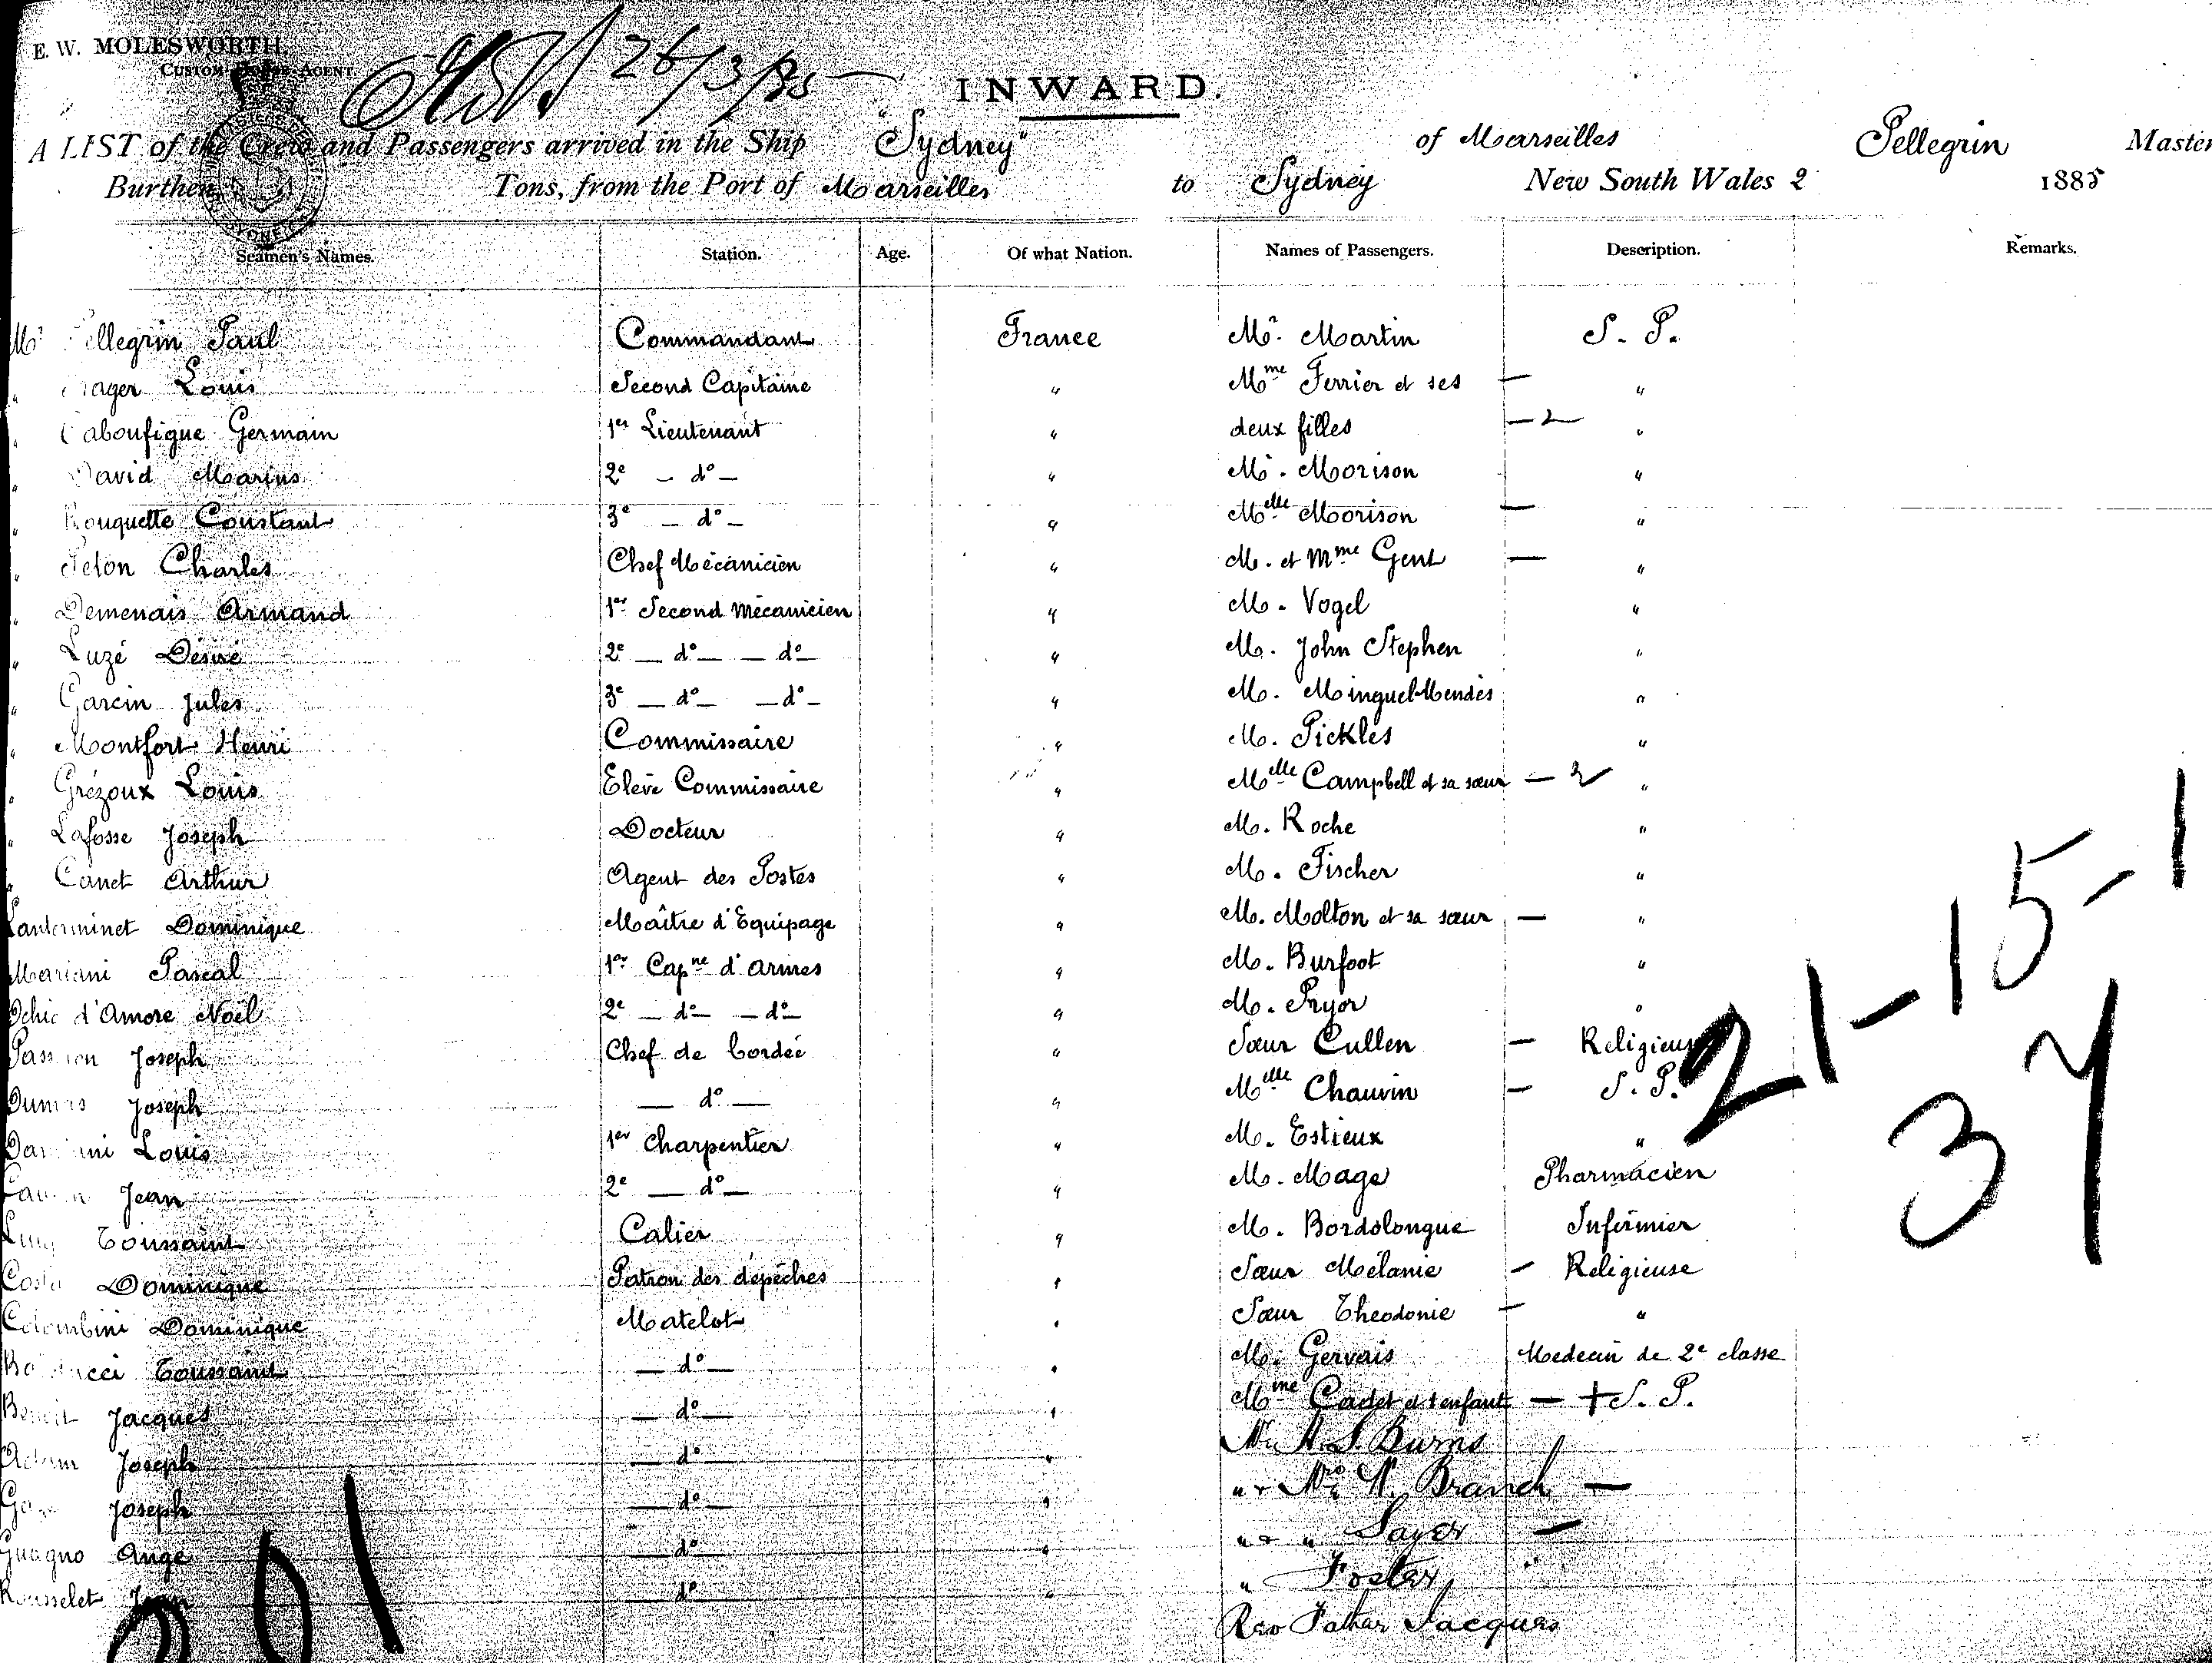 E. W. MOLESWORTH,
CUSTOM HOUSE AGENT.
26/3/85
INWARD.
A LIST of the Crew and Passengers arrived in the Ship "Sydney" of Marseilles Pellegrin Master
Burthen Tons, from the Port of Marseilles to Sydney New South Wales 2 1885
Seamen's Names. Station. Age. Of what Nation. Names of Passengers. Description. Remarks.
Mr Pellegrin Paul Commandant France Mr. Martin S. P.
" Louis Second Capitaine " Mme Ferrier et ses — "
" Caboufigue Germain 1er Lieutenant " deux filles — 2 "
" David Marius 2e — do — " Mr. Morison "
" Rouquette Constant 3e — do — " Melle Morison — "
" Charles Chef Mécanicien " M. et Mme Gent — "
" Demenais Armand 1er Second Mécanicien " M. Vogel "
" Luzé Désiré 2e — do — — do — " M. John Stephen "
" Garcin Jules 3e — do — — do — " M. Minguel-Mendès "
" Montfort Henri Commissaire " M. Pickles "
" Grézoux Louis Elève Commissaire " Melle Campbell et sa sœur — 2 "
" Lafosse Joseph Docteur " M. Roche "
" Canet Arthur Agent des Postes " M. Fischer "
Dominique Maître d'Equipage " M. Molton et sa sœur — "
Mariani Pascal 1er Capne d'armes " M. Burfoot "
d'Amore Noël 2e — do — — do — " M. Pryor "
Joseph Chef de bordée " Sœur Cullen — Religieuse
Dumas Joseph — do — " Melle Chauvin — S. P.
Louis 1er Charpentier " M. Estieux "
Jean 2e — do — " M. Mage Pharmacien
Toussaint Calier " M. Bordolongue Infirmier
Costa Dominique Patron des dépêches " Sœur Mélanie — Religieuse
Colombini Dominique Matelot " Sœur Theodonie — "
Toussaint — do — " M. Gervais Medecin de 2e classe
Benoit Jacques — do — " Mme Cadet et 1 enfant — + S. P.
Adam Joseph — do — " Mr H. S. Burns
Joseph — do — " " Mrs W. Branch —
Guagno Ange — do — " " " Sayer —
Rousselet Jean — do — " " Foster "
Rev Father Jacques
21-15-1
37
201